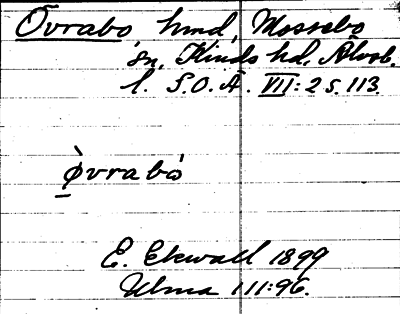 Övrabo hmd, Mossebo
sn, Kinds hd, Älvsb.
l. S.O.Ä. VII:2 s. 113
ø̀vrabó
E. Ekwall 1899
Ulma 111:96.